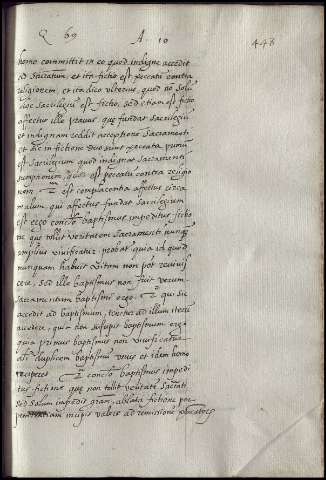 Q 69 A. 10 448
homo committit in eo quod indigne accedit
ad Sacratum, et ita fictio est peccatū contra
religionem, et ita dico ulterius, quod nō solū
hoc sacrilegiū est fictio, sed etiam est fictio
affectus ille pravus que fundat sacrilegiū
et indignam reddit acceptione Sacramenti
et sic in fictione duo sunt peccata, unum
est sacrilegium quod indignae sacramenti
sumptionem, est peccatū contra religio
nem 2m est complacentia affectus circa
malum, qui affectus fundat sacrilegium
est ergo conclo baptismus impeditus fictio
ne que tollit veritatem Sacramenti nunq
amplius vivificatur probat quia id quod
nunquam habuit vitam non pōt revivis
cere, sed ille baptismus non fuit verum
sacramentum baptismi ergo. 2o qui sic
accedit ad baptismum, tenetur ad illum iterū
accedere, quia non suscepit baptismum ergo
quia primus baptismus non vivificatur
duplicem baptismū verus et idem homo
reciperet 2a conclo baptismus impedi
tus fictione que non tollit veritatē Sacrati
sed solum impedit gram, ablata fictione per
penitentiam incipit valere ad remissionē peccatorū